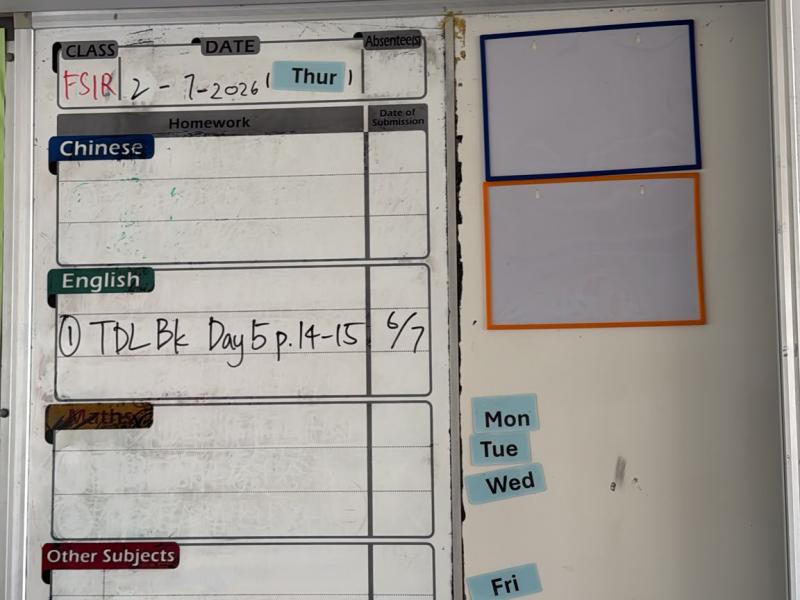 CLASS DATE Absentee(s)
FS1R 2-7-2026 (Thur)
Homework Date of Submission
Chinese
English
① TDL Bk Day 5 p.14-15 6/7
Maths
Other Subjects
Mon
Tue
Wed
Fri